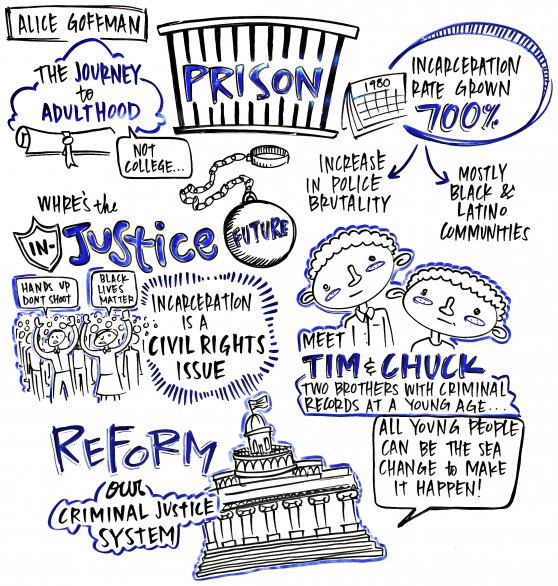 ALICE GOFFMAN
THE JOURNEY
to
ADULTHOOD
NOT
COLLEGE...
PRISON
1980
INCARCERATION
RATE GROWN
700%
INCREASE
IN POLICE
BRUTALITY
MOSTLY
BLACK &
LATINO
COMMUNITIES
WHRE'S the
IN-
JUSTICE
FUTURE
HANDS UP
DONT SHOOT
BLACK
LIVES
MATTER
INCARCERATION
IS A
CIVIL RIGHTS
ISSUE
MEET
TIM & CHUCK
TWO BROTHERS WITH CRIMINAL
RECORDS AT A YOUNG AGE...
REFORM
OUR
CRIMINAL JUSTICE
SYSTEM
ALL YOUNG PEOPLE
CAN BE THE SEA
CHANGE to MAKE
IT HAPPEN!